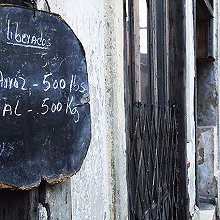 liberados
Arroz - 500 Kgs
SAL - 500 Kg